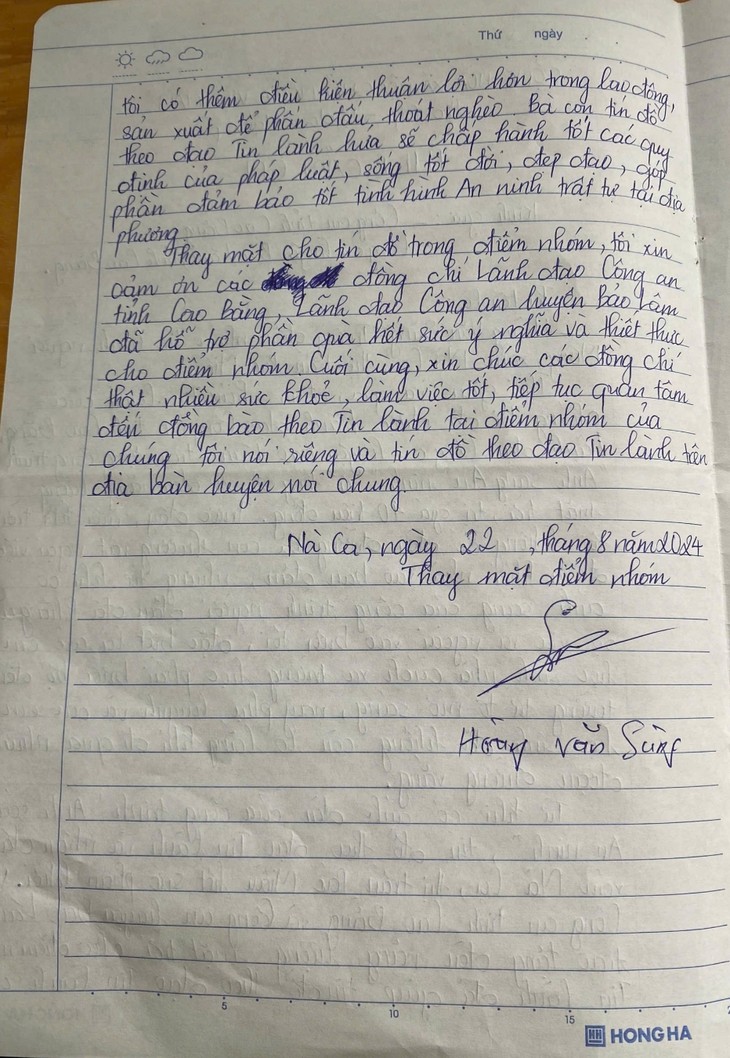 Thứ ngày
tôi có thêm điều kiện thuận lợi hơn trong lao động,
sản xuất để phấn đấu, thoát nghèo. Bà con tín đồ
theo đạo Tin lành hứa sẽ chấp hành tốt các quy
định của pháp luật, sống tốt đời, đẹp đạo, góp
phần đảm bảo tốt tình hình An ninh trật tự tại địa
phương.
Thay mặt cho tín đồ trong điểm nhóm, tôi xin
cảm ơn các đồng chí Lãnh đạo Công an
tỉnh Cao Bằng, Lãnh đạo Công an huyện Bảo Lâm
đã hỗ trợ phần quà hết sức ý nghĩa và thiết thực
cho điểm nhóm. Cuối cùng, xin chúc các đồng chí
thật nhiều sức khoẻ, làm việc tốt, tiếp tục quan tâm
đến đồng bào theo Tin lành tại điểm nhóm của
chúng tôi nói riêng và tín đồ theo đạo Tin lành trên
địa bàn huyện nói chung.
Nà Ca, ngày 22, tháng 8 năm 2024
Thay mặt điểm nhóm
Hoàng Văn Sùng
5 10 15
HH HONG HA